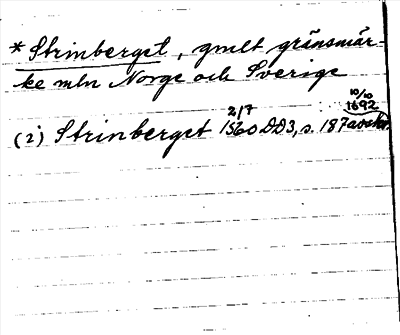 * Strinberget, gmlt gränsmär-
ke mln Norge och Sverige
10/10
2/7 1692
(i) Strinberget 1560 DD3, s. 187 avskr.